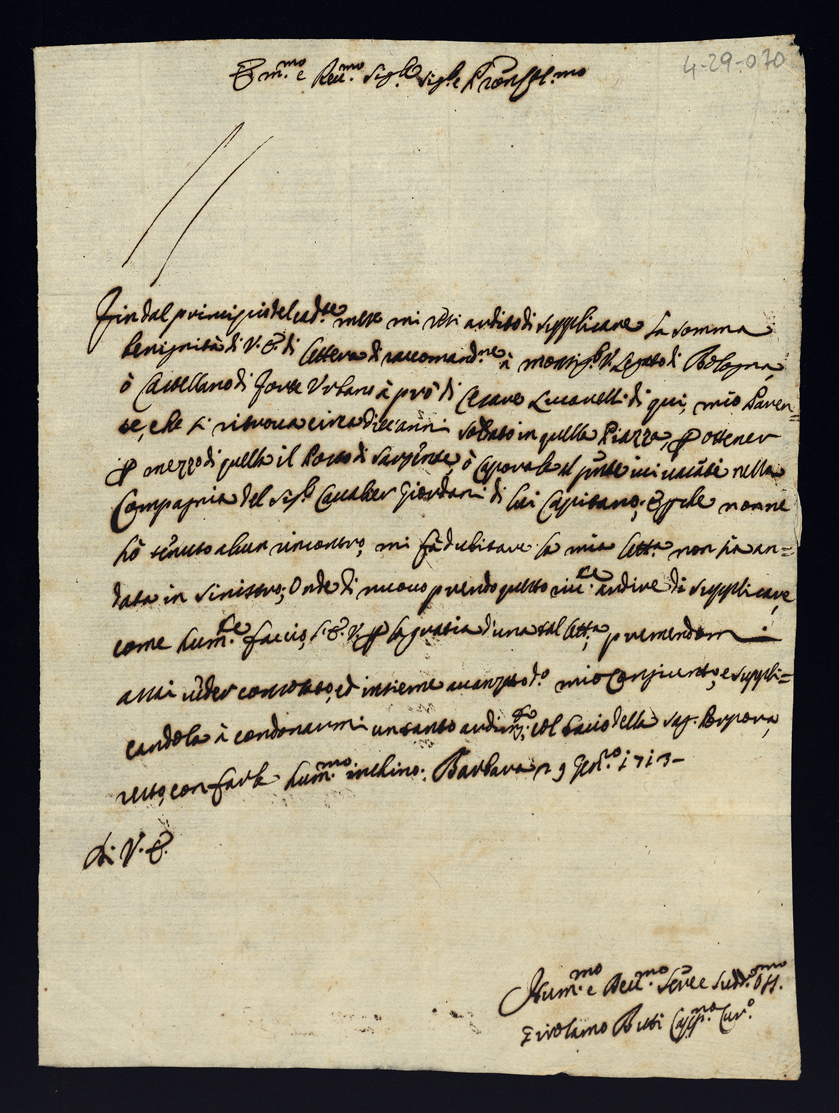 4-29-070
Em.mo e Rev.mo Sig.re Sig.re e Pron
Fin dal principio del cad.te mese mi resi ardito di supplicare la somma
benignità di V. E. di lettera di raccomand.ne à Monsig.r V. Legato di Bologna,
ò Castellano di Forte Urbano à prò di Cesare Lucarelli di qui, mio Paren=
te, che si ritrova circa dieci anni soldato in quella Piazza, p ottener
p mezzo di quella il Posto di Sargente, ò Caporale al pnte ivi vacati nella
Compagnia del Sig.r Cavalier Giordani di lui Capitano; E pche non ne
hò tenuto alcun rincontro, mi fà dubitare la mia lett.a non sia an=
data in sinistro; Onde di nuovo prendo questo ardire di supplicare,
come hum.te faccio, l'E. V. p la gratia d'una tal lett.a, premendomi
assai veder consolato, ed insieme avanzato d.o mio Congiunto, e suppli=
candola à condonarmi un tanto ardim.to, col bacio della sag. Porpora,
resto con farle hum.mo inchino. Barbara 29 1713
di V. E.
Hum.mo e Rev.mo Serv.e e Sudd.o Oss.mo
Girolamo Cur.o